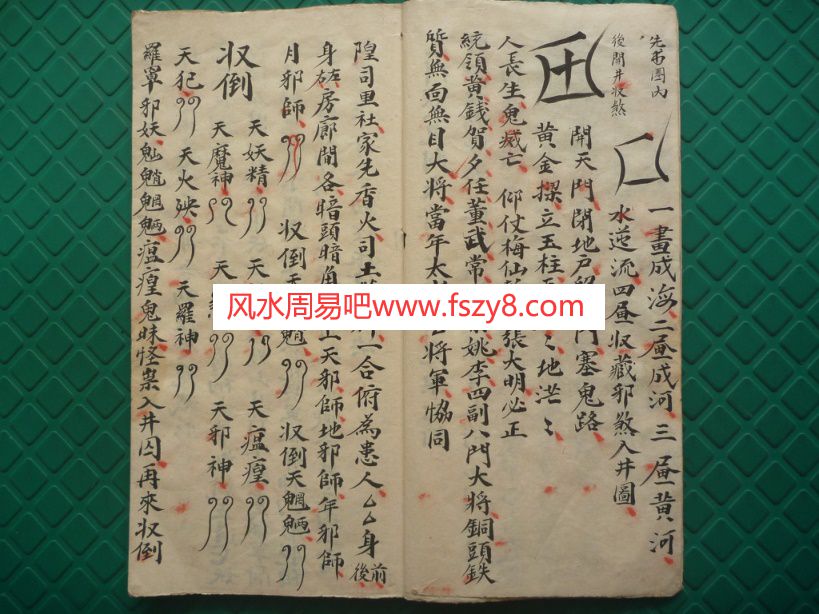 先布圈內
後開井收煞
一畫成海二畫成河三畫黃河
水逆流四畫收藏邪煞入井圖
開天門閉地戶留 門塞鬼路
黃金樑立玉柱 地茫〻
人長生鬼滅亡 仰仗梅仙 張大明必正
統領黃錢賀夕任董武常 姚李四副八門大將銅頭鉄
質無面無目大將當年太 將軍協同
隍司里社家先香火司土 一合俯為患人厶厶身前後
身 房廊間各暗頭暗角 上天邪師地邪師年邪師
月邪師 收倒天 魈 收倒天魍魎
收倒 天妖精 天 天瘟瘟
天魔神 天 天邪神
天犯 天火殃 天羅神
羅 邪妖 魈魍魎瘟瘟鬼昧怪祟入井囚再來收倒
风水周易吧www.fszy8.com